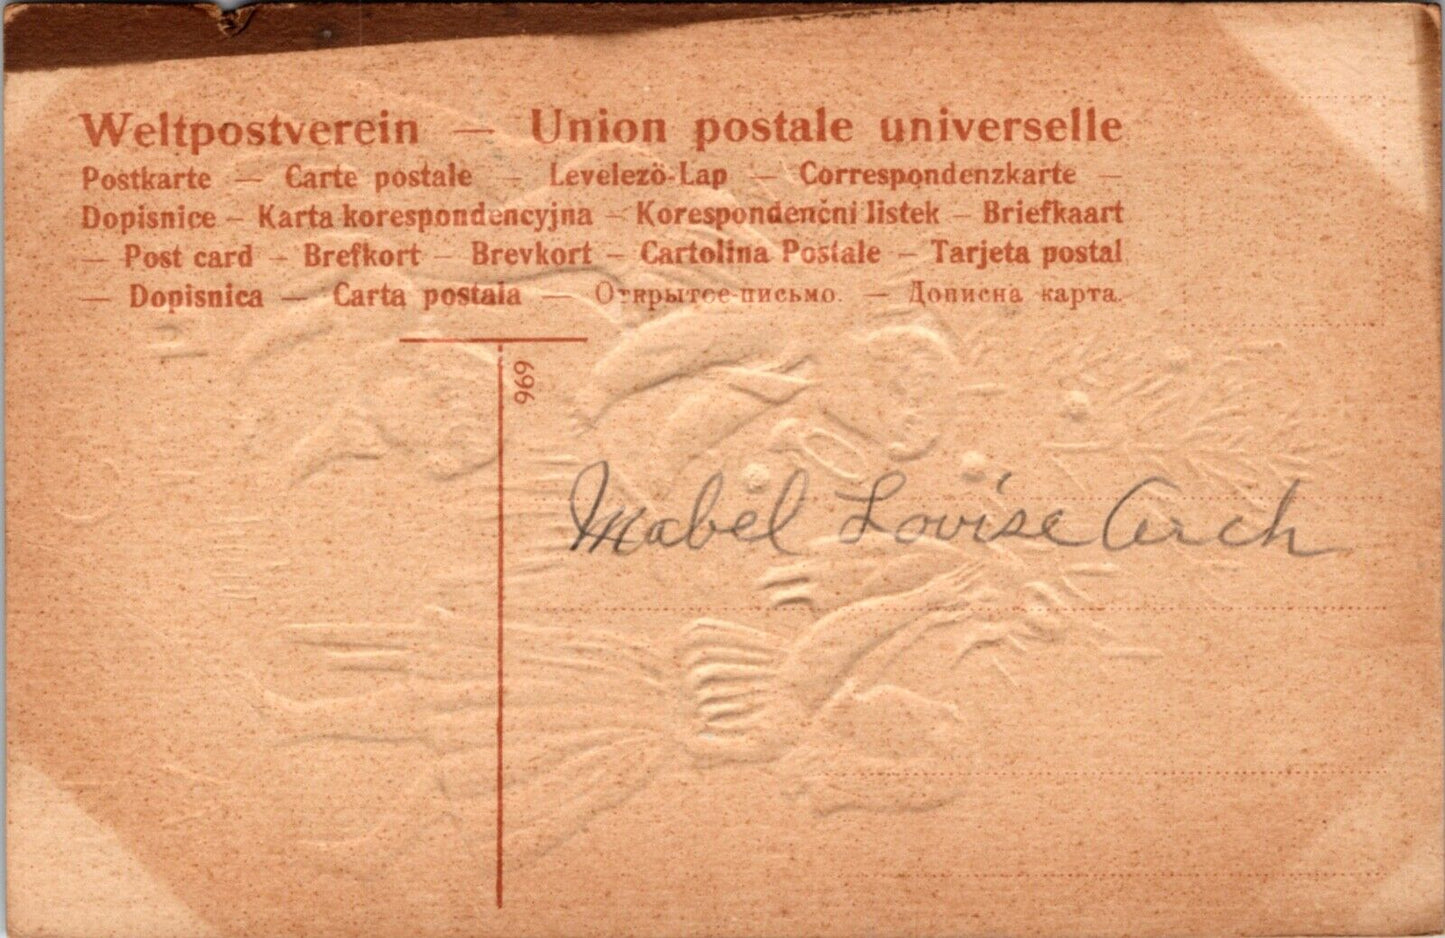 Weltpostverein — Union postale universelle
Postkarte — Carte postale — Levelezö-Lap — Correspondenzkarte —
Dopisnice — Karta korespondencyjna — Korespondenčni listek — Briefkaart
— Post card — Brefkort — Brevkort — Cartolina Postale — Tarjeta postal
— Dopisnica — Carta postala — Открытое-письмо. — Дописна карта.
969
Mabel Louise Arch